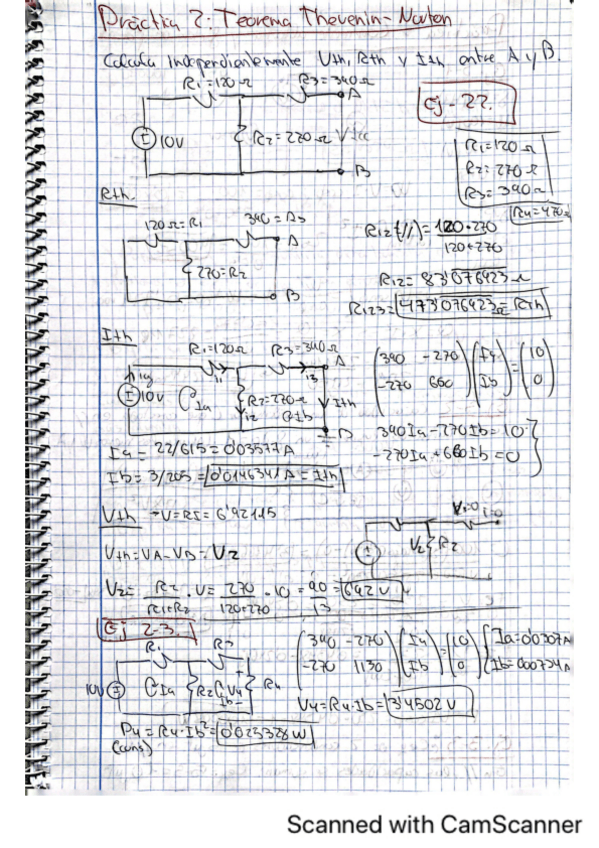 Práctica 2: Teorema Thevenin-Norton
Calcula independientemente Vth, Rth y Ith entre A y B.
R1=120Ω R3=390Ω
A
Ej-2.2.
10V
R2=270Ω
B
R1=120Ω
R2=270Ω
R3=390Ω
R4=470Ω
Rth
120Ω=R1 390=R3
A
270=R2
B
R12(//)=120·270
120+270
R12=83'076923Ω
R123=473'076923Ω=Rth
Ith
R1=120Ω R3=390Ω A
i1 i3
10V Ia R2=270Ω Ith
i2 Ib B
(390 -270) (Ia) = (10)
(-270 660) (Ib) (0)
390Ia-270Ib=10
-270Ia+660Ib=0
Ia=22/615=0'03577A
Ib=3/205=0'014634A=Ith
Vth →V=RI=6'92115
Vth=VA-VB=V2
V2 R2
V2= R2 ·V= 270 ·10 = 90 =6'92V
R1+R2 120+270 13
Ej 2-3.
R1 R3
10V Ia R2 V4 R4
Ib
(390 -270) (Ia) = (10) Ia=0'0307A
(-270 1130) (Ib) (0) Ib=0'00734A
V4=R4·Ib=3'4502V
P4=R4·Ib²=0'025328W
(cons)
Scanned with CamScanner